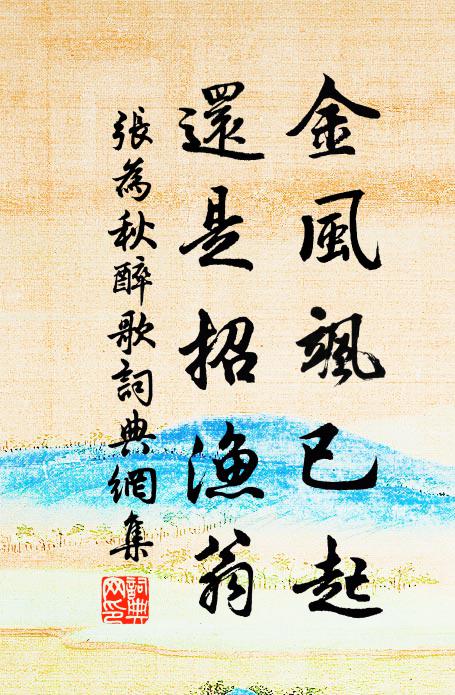 金風颯已起
還是招漁翁
張為秋醉歌詞典網集
詞典